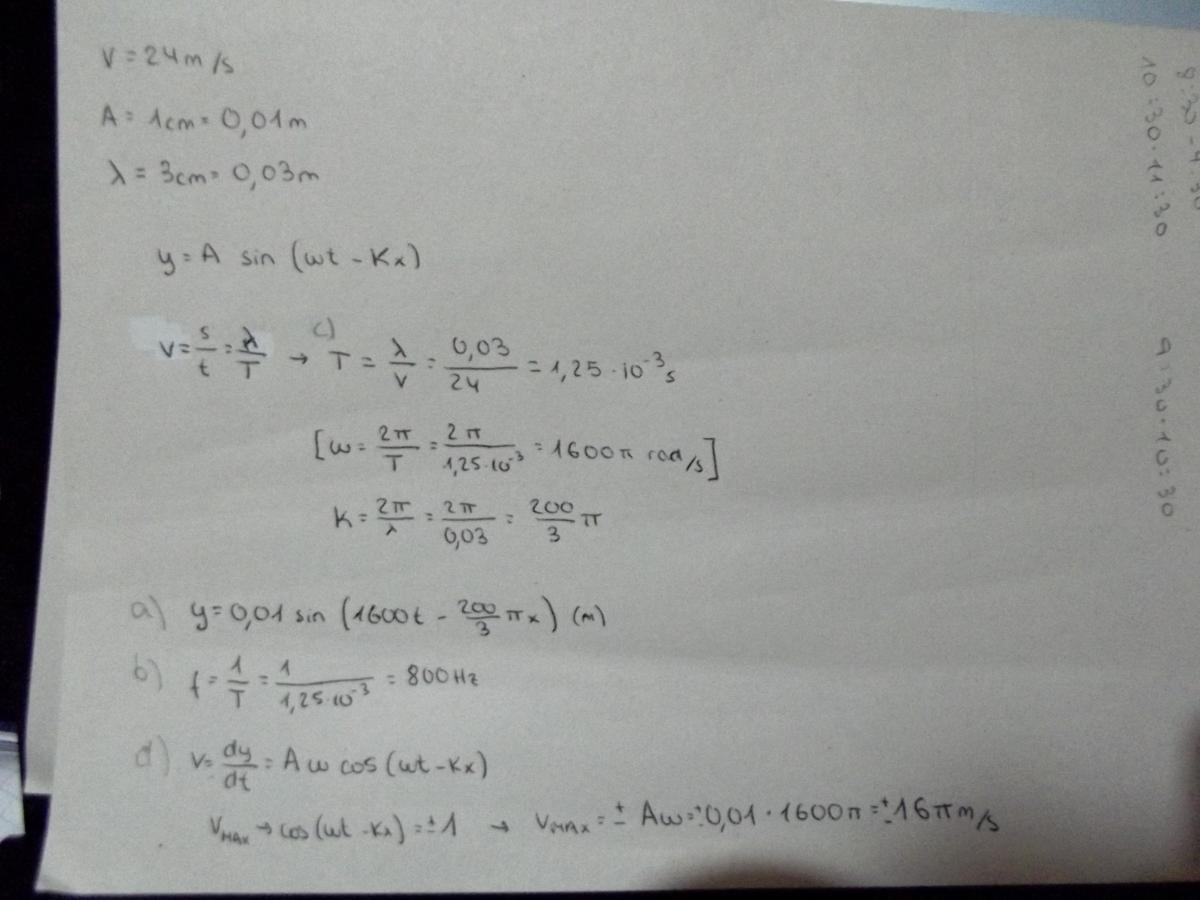 v = 24 m/s
A = 1cm = 0,01m
λ = 3cm = 0,03m
y = A sin (ωt - Kx)
v = s/t = λ/T → c) T = λ/v = 0,03/24 = 1,25 · 10⁻³ s
[ω = 2π/T = 2π/1,25·10⁻³ = 1600π rad/s]
K = 2π/λ = 2π/0,03 = 200/3 π
a) y = 0,01 sin (1600t - 200/3 πx) (m)
b) f = 1/T = 1/1,25·10⁻³ = 800 Hz
d) v = dy/dt = A ω cos (ωt - Kx)
VMAX → cos (ωt - Kx) = ±1 → VMAX = ± Aω = ±0,01 · 1600π = ±16π m/s
10:30-11:30
9:30-10:30